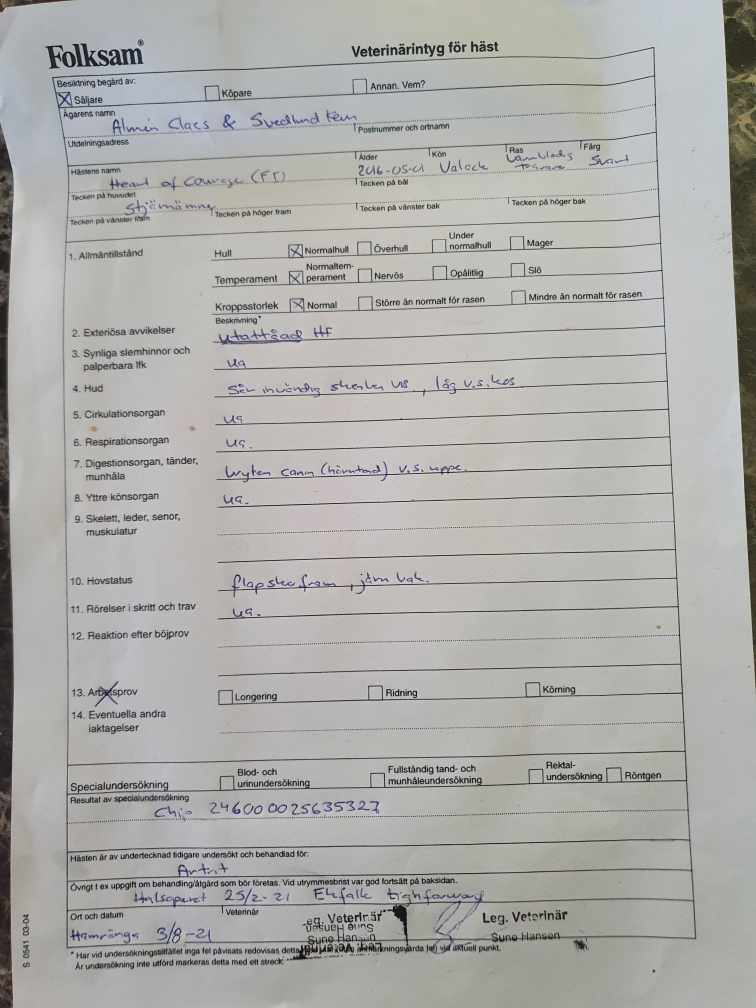 Folksam®
Veterinärintyg för häst
Besiktning begärd av:
Säljare Köpare Annan. Vem?
Ägarens namn
Almén Claes & Svedlund Kem
Utdelningsadress Postnummer och ortnamn
Hästens namn Ålder Kön Ras Färg
Heart of Courage (FI) 2016-05-01 Valack Varmblodig Svart
Tecken på huvudet Tecken på bål
Stjärnämne
Tecken på vänster fram Tecken på höger fram Tecken på vänster bak Tecken på höger bak
1. Allmäntillstånd Hull Normalhull Överhull Under normalhull Mager
Temperament Normaltemperament Nervös Opålitlig Slö
Kroppsstorlek Normal Större än normalt för rasen Mindre än normalt för rasen
Beskrivning*
2. Exteriösa avvikelser utåttåad HF
3. Synliga slemhinnor och
palperbara lfk ua
4. Hud Sår invändig VB, låg v.s. kos
5. Cirkulationsorgan ua
6. Respirationsorgan ua.
7. Digestionsorgan, tänder,
munhåla bryten canin (hörntand) v.s. uppe.
8. Yttre könsorgan ua.
9. Skelett, leder, senor,
muskulatur
10. Hovstatus flapsko fram, järn bak.
11. Rörelser i skritt och trav ua.
12. Reaktion efter böjprov
13. Arbetsprov Longering Ridning Körning
14. Eventuella andra
iaktagelser
Specialundersökning Blod- och urinundersökning Fullständig tand- och munhåleundersökning Rektal-undersökning Röntgen
Resultat av specialundersökning
Chip 246000025635327
Hästen är av undertecknad tidigare undersökt och behandlad för:
Artrit
Övrigt t ex uppgift om behandling/åtgärd som bör företas. Vid utrymmesbrist var god fortsätt på baksidan.
Halsoperet 25/2-21 Ekfalle tighforward
Ort och datum Veterinär
Hamrånga 3/8-21
Leg. Veterinär
Sune Hansen
* Har vid undersökningstillfället inget fel påvisats redovisas detta vid aktuell punkt.
Är undersökning inte utförd markeras detta med ett streck.
S 0541 03-04